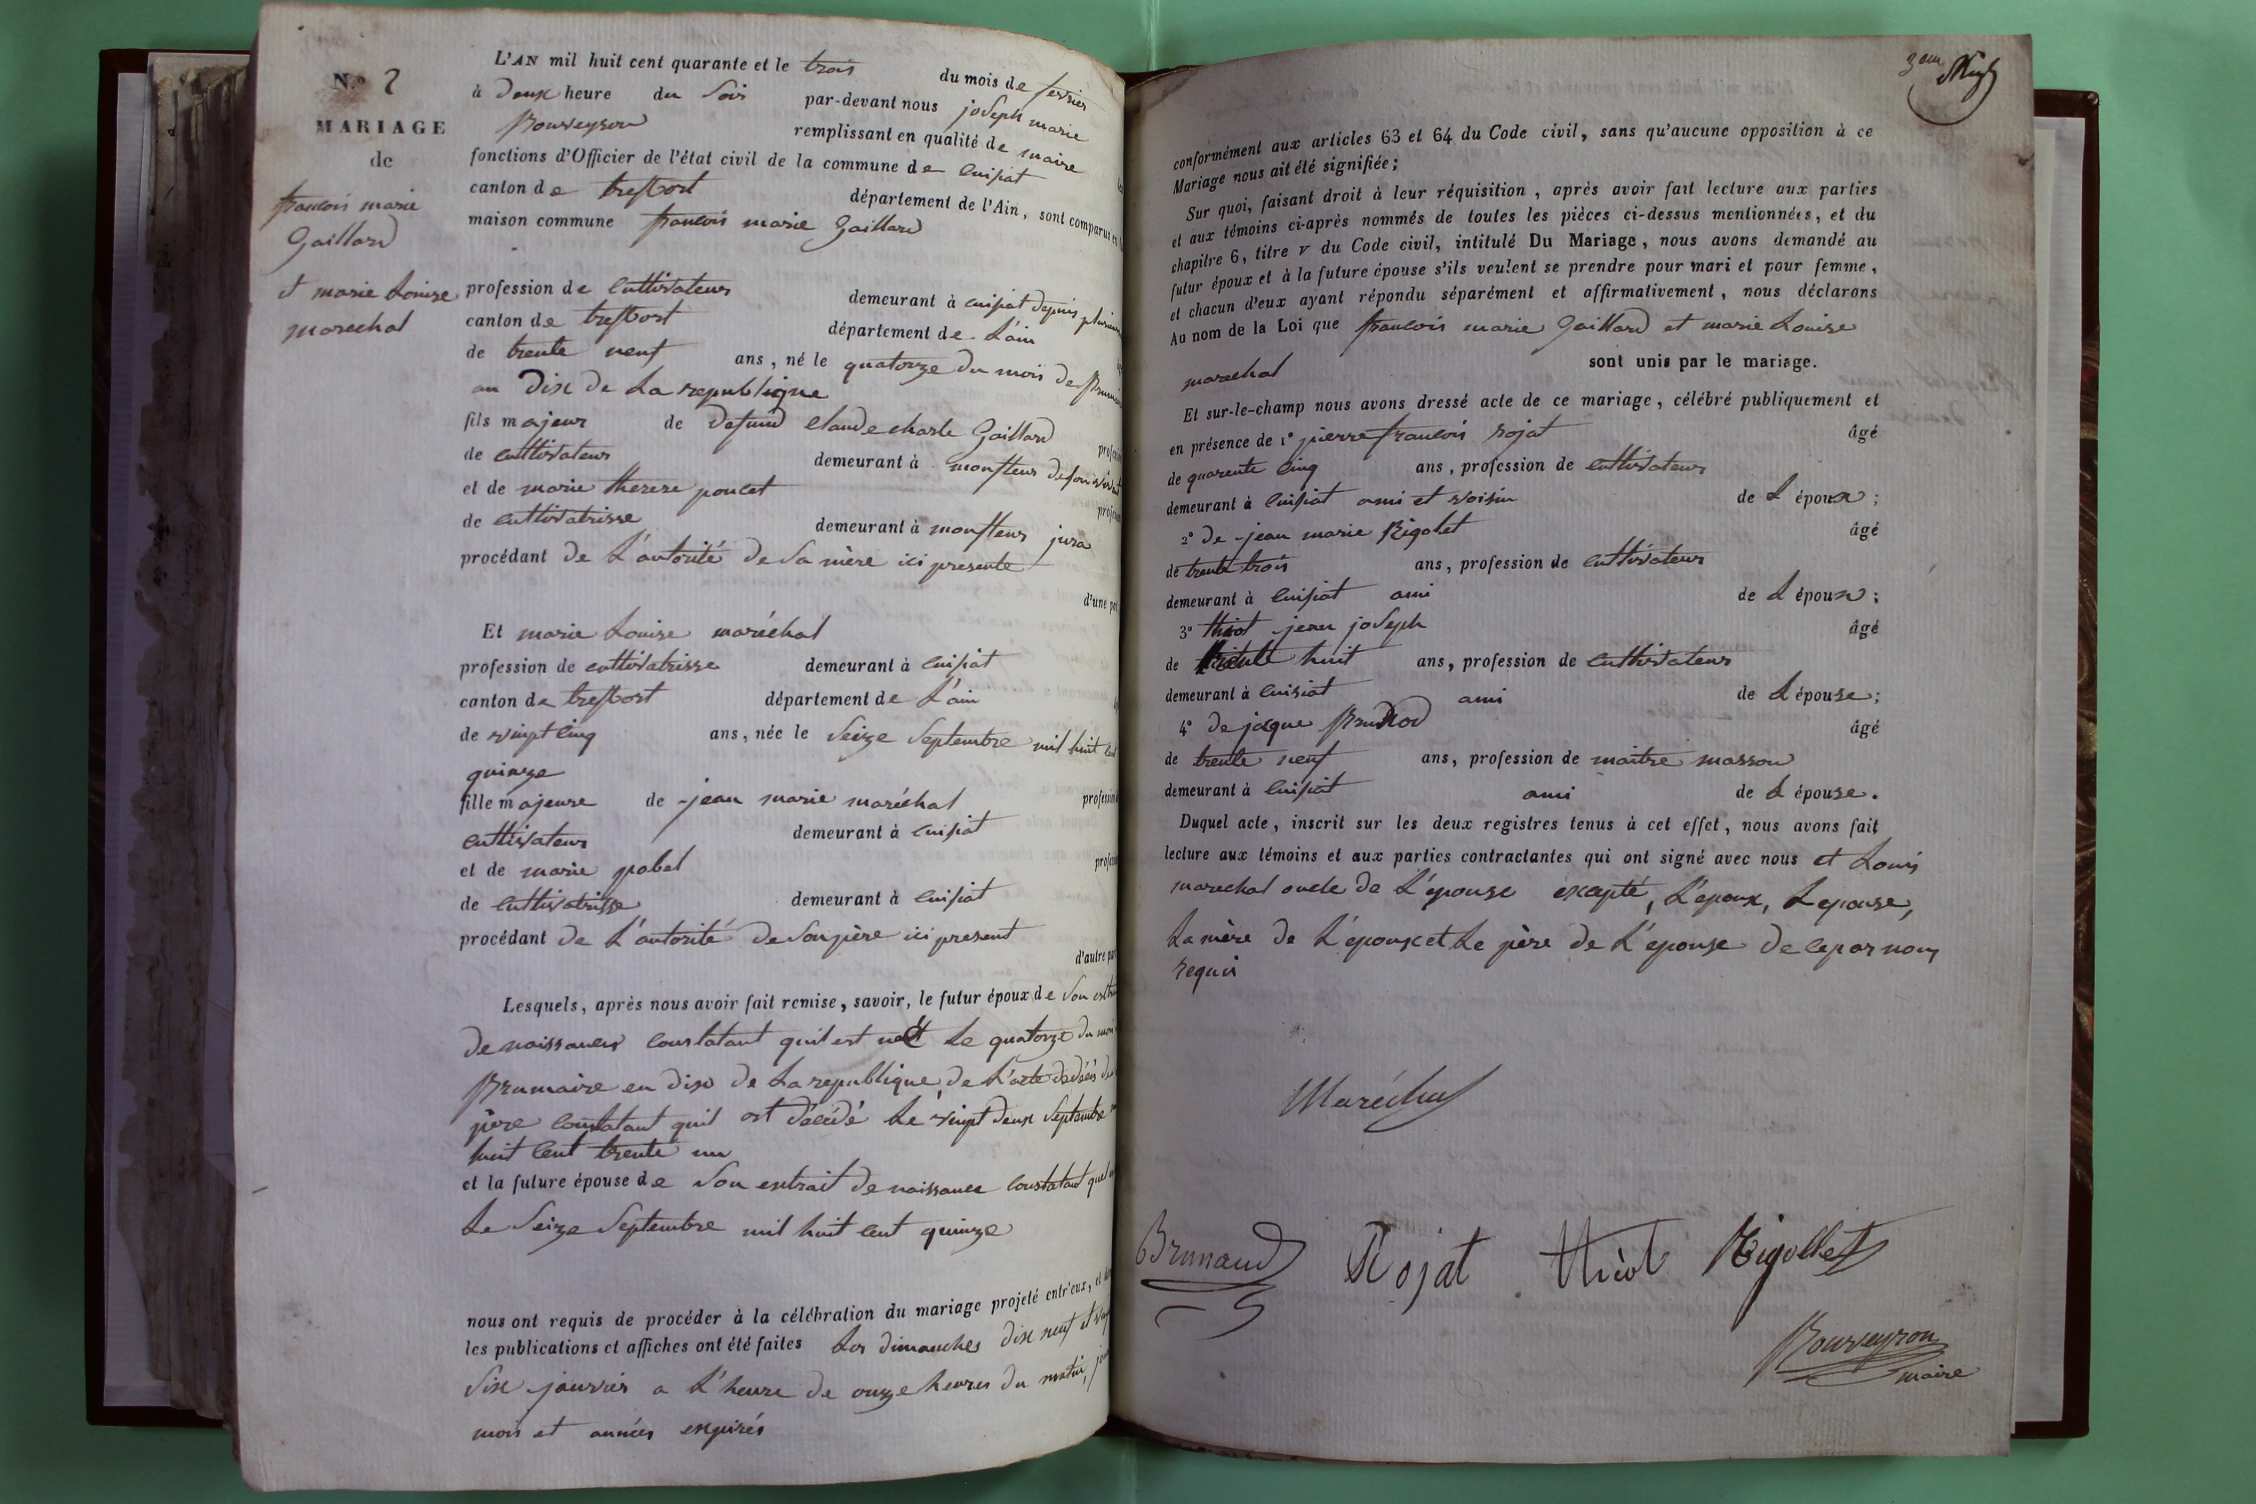 N.o 2
MARIAGE
de
francois marie
Gaillard
et marie Louise
marechal
L'AN mil huit cent quarante et le trois du mois de fevrier
à deux heure du soir par-devant nous joseph marie
Bouveyron remplissant en qualité de maire
fonctions d'Officier de l'état civil de la commune de Cuisiat
canton de treffort département de l'Ain, sont comparus
maison commune francois marie Gaillard
profession de Cultivateur demeurant à cuisiat depuis
canton de treffort département de L'ain
de trente neuf ans, né le quatorze du mois de
an Dix de La republique
fils majeur de defund Claude charle Gaillard
de cultivateur demeurant à monfleur de son vivant
et de marie therese poncet
de cultivatrisse demeurant à monfleur jura
procédant de L'autorité de sa mère ici presente
d'une
Et marie Louise maréchal
profession de cultivatrisse demeurant à Cuisiat
canton de treffort département de L'ain
de vingt cinq ans, née le Seize Septembre mil huit cent
quinze
fille majeure de jean marie maréchal profession
cultivateur demeurant à cuisiat
et de marie pobel
de Cultivatrisse demeurant à Cuisiat
procédant de L'autorité de son père ici present
d'autre
Lesquels, après nous avoir fait remise, savoir, le futur époux de Son
de naissance constatant quil est né Le quatorze du mois
Brumaire en dix de La republique, de L'acte de décès de
père constatant quil est décédé Le vingt deux Septembre
huit Cent trente un
et la future épouse de Son extrait de naissance Constatant
Le Seize Septembre mil huit cent quinze
nous ont requis de procéder à la célébration du mariage projeté entr'eux, et
les publications et affiches ont été faites Les dimanches dix neuf et
Six janvier a L'heure de onze heures du matin,
mois et années expirés
conformément aux articles 63 et 64 du Code civil, sans qu'aucune opposition à ce
Mariage nous ait été signifiée;
Sur quoi, faisant droit à leur réquisition, après avoir fait lecture aux parties
et aux témoins ci-après nommés de toutes les pièces ci-dessus mentionnées, et du
chapitre 6, titre V du Code civil, intitulé Du Mariage, nous avons demandé au
futur époux et à la future épouse s'ils veulent se prendre pour mari et pour femme,
et chacun d'eux ayant répondu séparément et affirmativement, nous déclarons
Au nom de la Loi que francois marie Gaillard et marie Louise
marechal sont unis par le mariage.
Et sur-le-champ nous avons dressé acte de ce mariage, célébré publiquement et
en présence de 1° pierre francois rojat âgé
de quarente Cinq ans, profession de cultivateur
demeurant à Cuisiat ami et voisin de L époux;
2° de jean marie Rigolet âgé
de trente trois ans, profession de cultivateur
demeurant à Cuisiat ami de L époux;
3° jean joseph âgé
de trente huit ans, profession de Cultivateur
demeurant à Cuisiat ami de L épouse;
4° de jaque âgé
de trente neuf ans, profession de maitre masson
demeurant à Cuisiat ami de L épouse.
Duquel acte, inscrit sur les deux registres tenus à cet effet, nous avons fait
lecture aux témoins et aux parties contractantes qui ont signé avec nous et Louis
marechal oncle de L'épouse excepté, L'époux, L'epouse,
La mère de L'époux et Le père de L'epouse de ce par nous
requis
Maréchal
Brunaud Rojat Rigollet
Bouveyron
maire